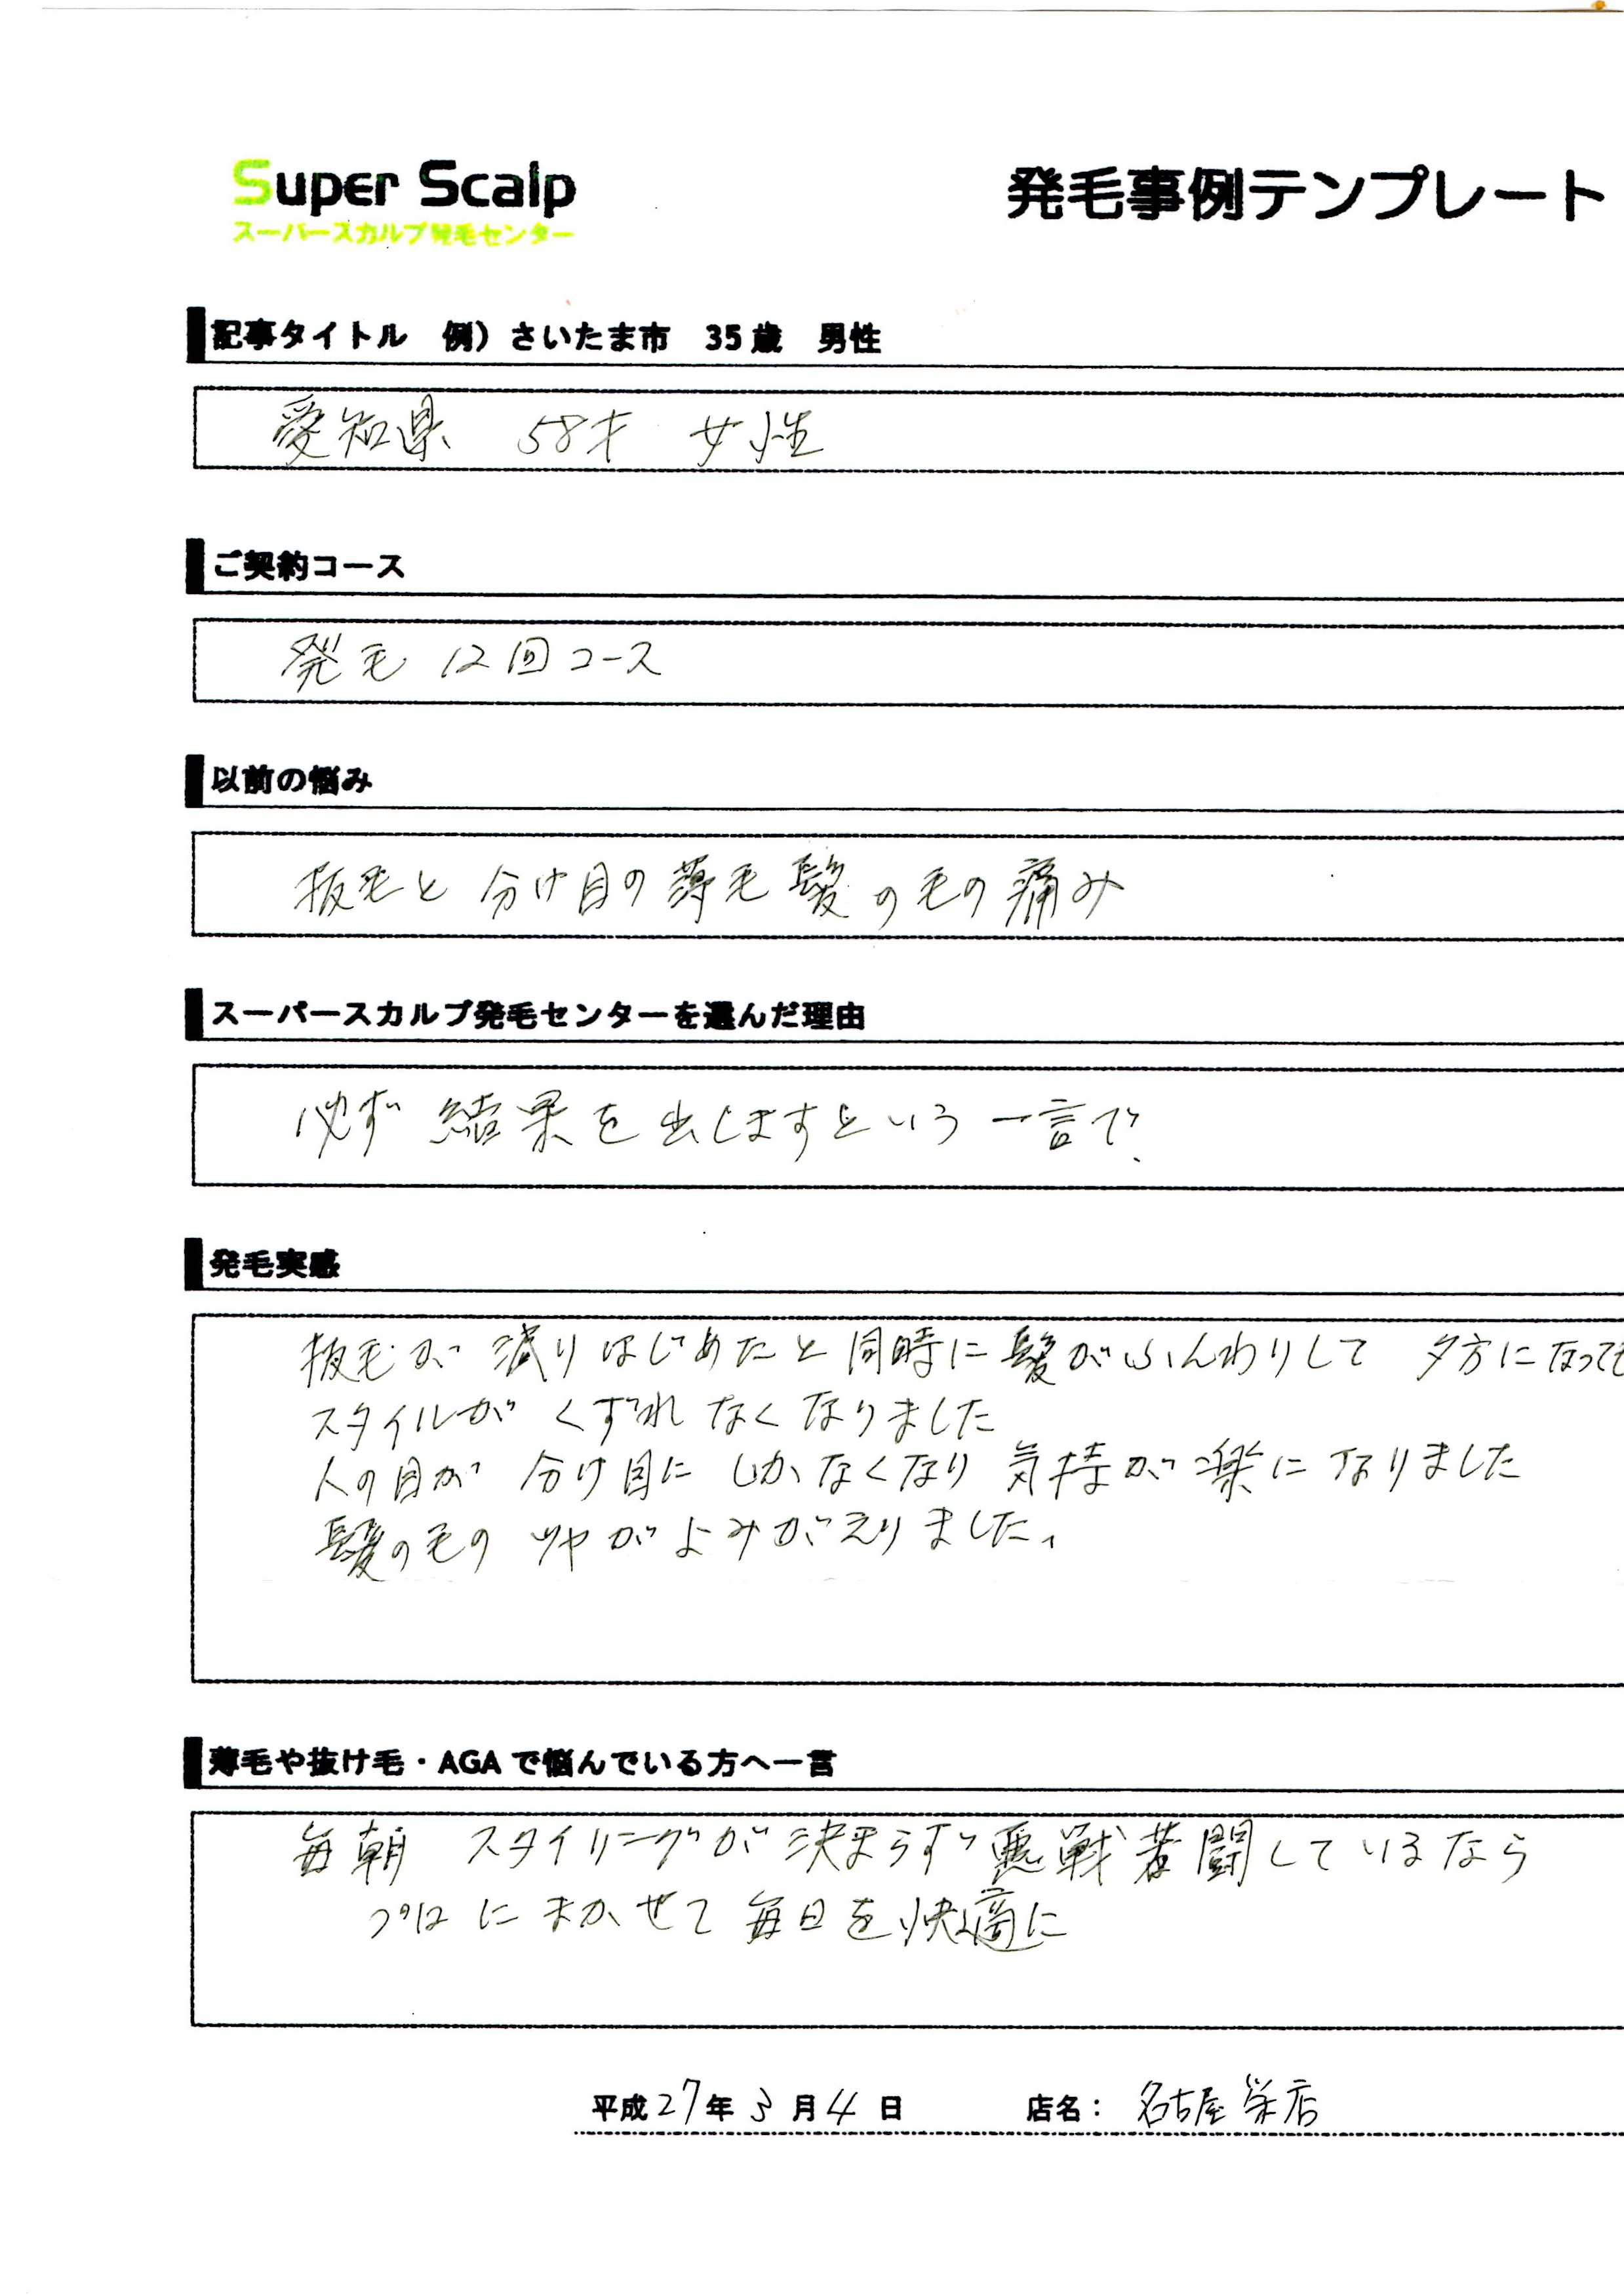 Super Scalp
スーパースカルプ発毛センター
発毛事例テンプレート
記事タイトル 例）さいたま市 35歳 男性
愛知県 58才 女性
ご契約コース
発毛 12回コース
以前の悩み
抜毛と 分け目の薄毛 髪の毛の痛み
スーパースカルプ発毛センターを選んだ理由
必ず 結果を出しますという 一言で
発毛実感
抜毛が 減りはじめたと同時に髪がふんわりして 夕方になっても
スタイルが くずれなくなりました
人の目が 分け目に しかなくなり 気持が楽になりました
髪の毛の ツヤがよみがえりました。
薄毛や抜け毛・AGAで悩んでいる方へ一言
毎朝 スタイリングが決まらず悪戦苦闘しているなら
プロにまかせて毎日を快適に
平成27年3月4日 店名： 名古屋栄店